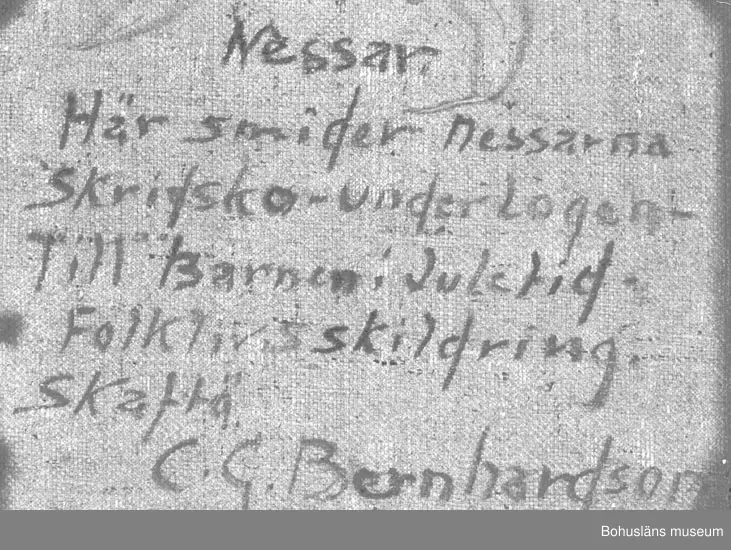 Nessar
Här smider nessarna
Skridsko-underlogen-
Till Barnen i Juletid.
Folklivsskildring.
Skaftö
C.G. Bernhardson
Bohusläns museum